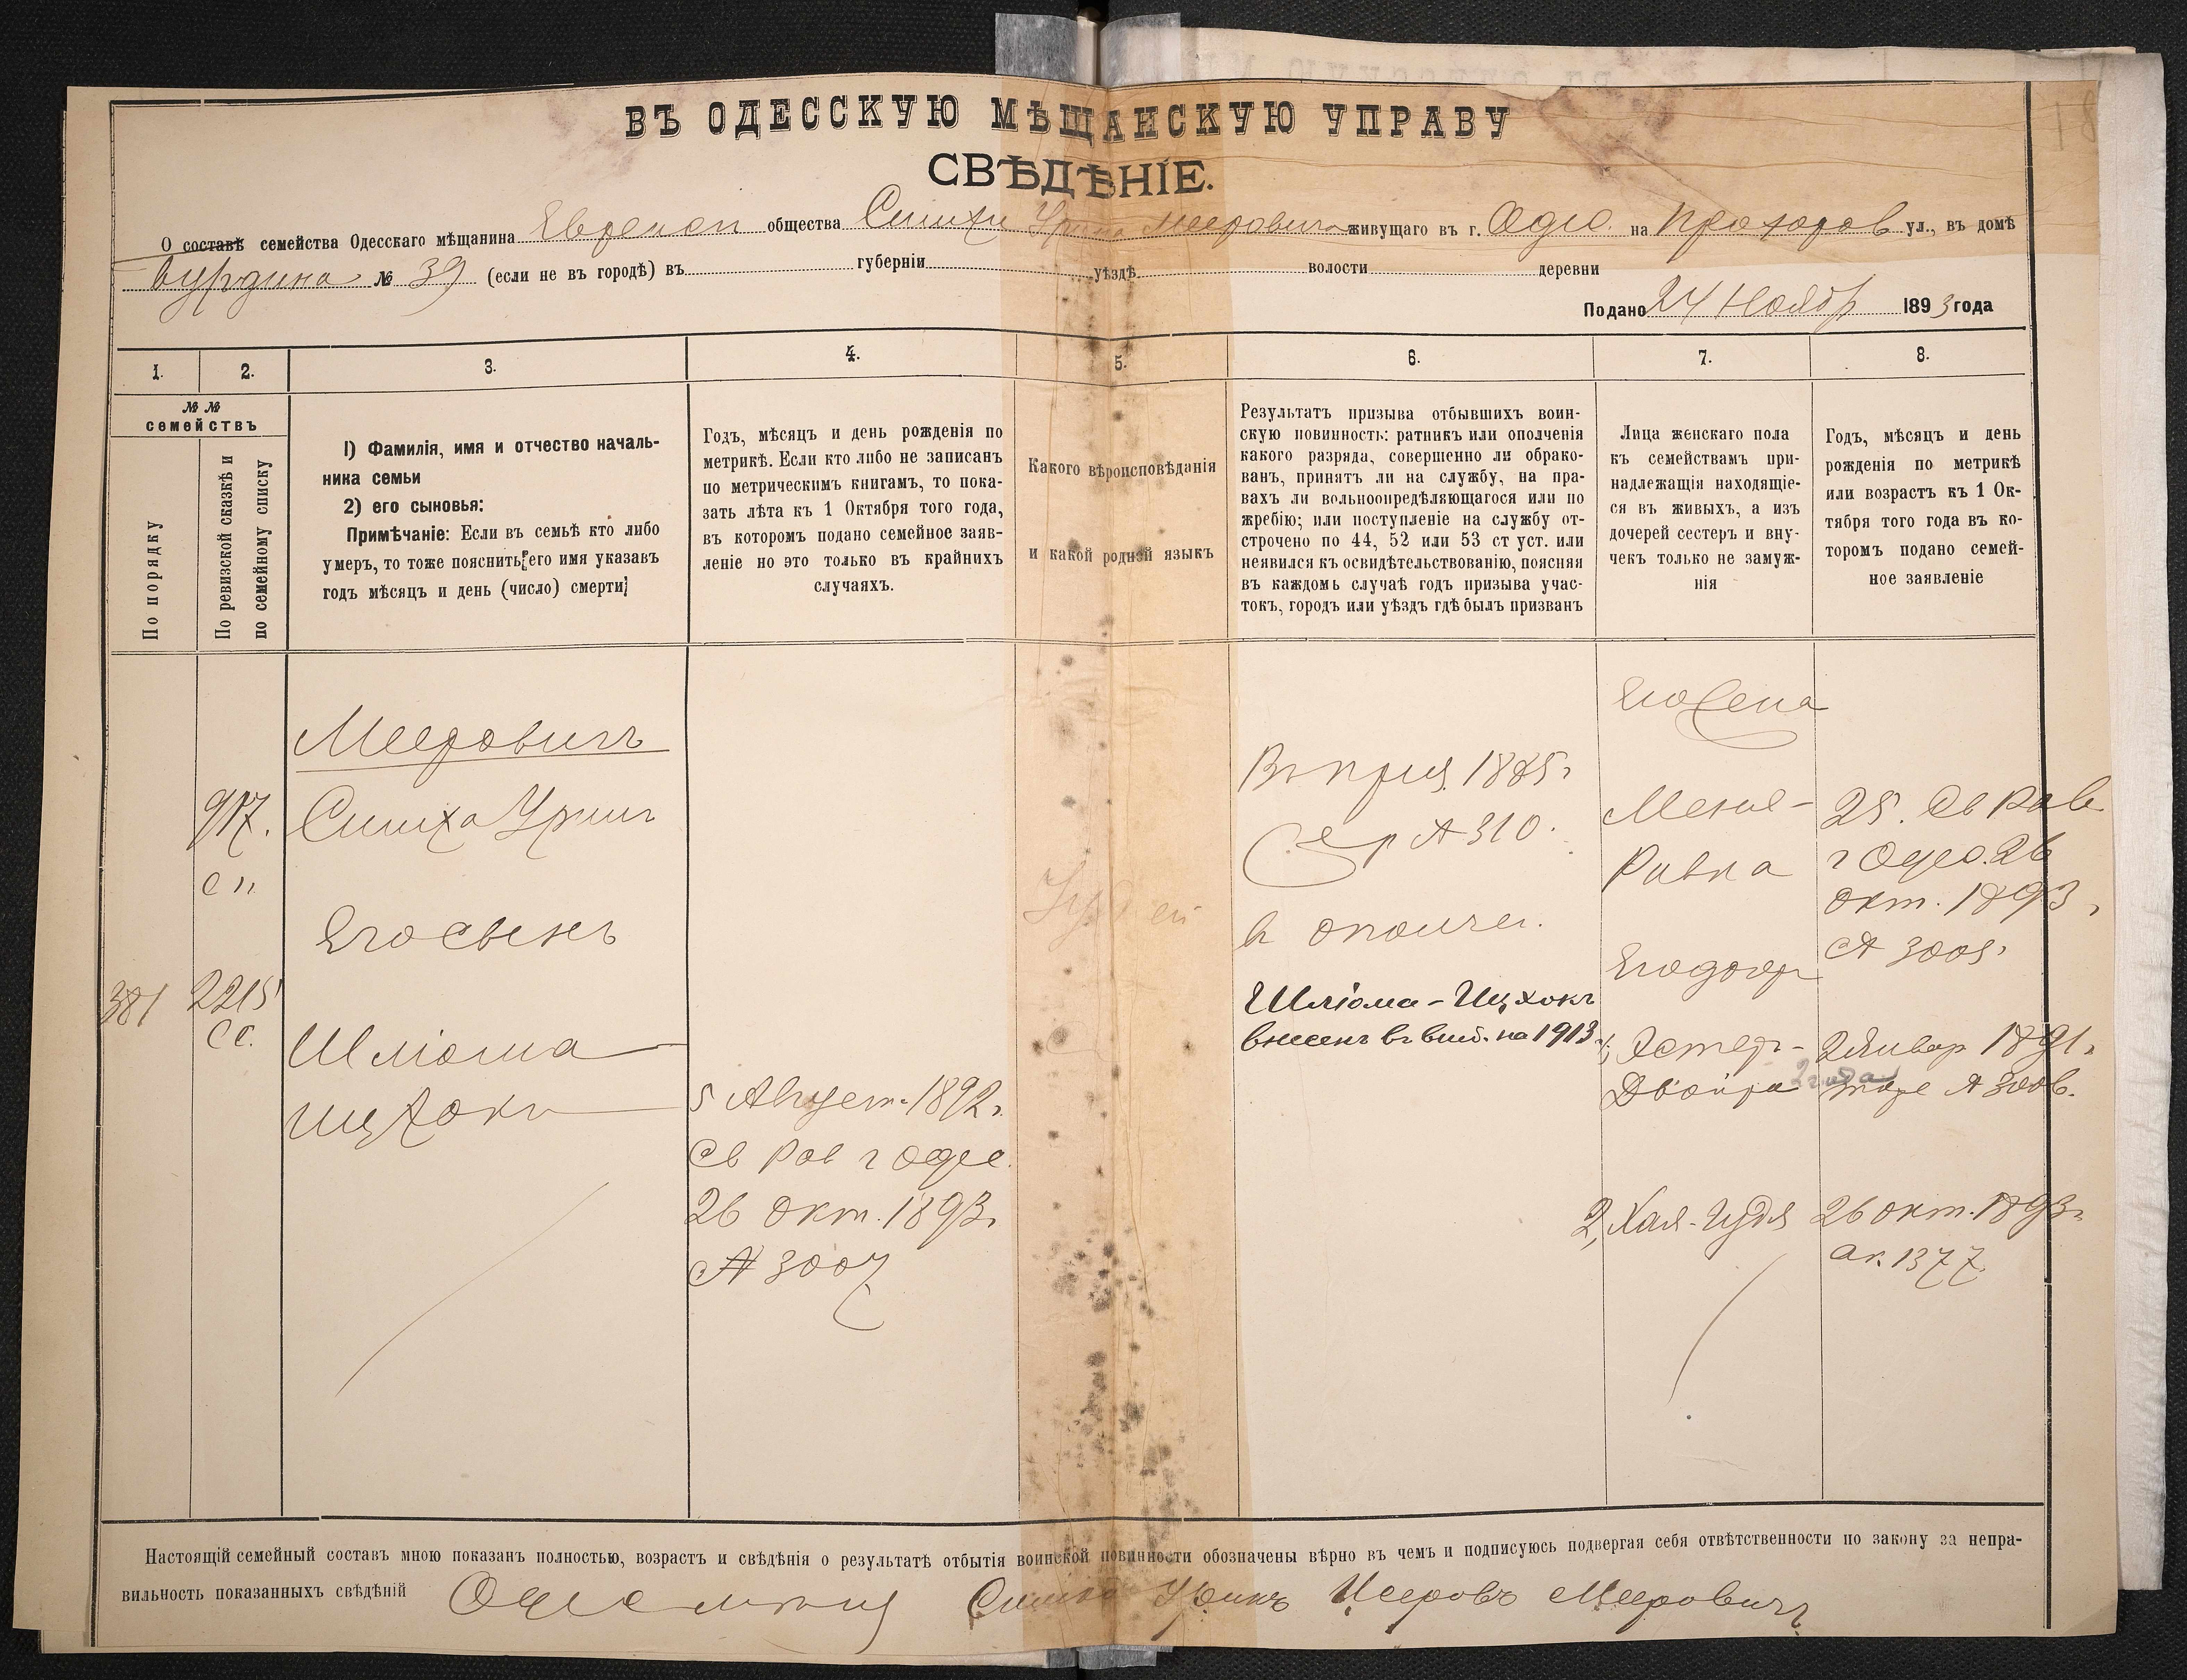 ВЪ ОДЕССКУЮ МѢЩАНСКУЮ УПРАВУ
СВѢДѢНІЕ.
О составѣ семейства Одесскаго мѣщанина Еврейск общества Симхи Урина Мееровича живущаго въ г. Одес. на Прохоров ул., въ домѣ
№ 39 (если не въ городѣ) въ губерніи уѣздѣ волости деревни
Подано 24 Ноябр 1893 года
1. 2. 3. 4. 5. 6. 7. 8.
№ №
семействъ
По порядку
По ревизской сказкѣ и
по семейному списку
1) Фамилія, имя и отчество началь-
ника семьи
2) его сыновья:
Примѣчаніе: Если въ семьѣ кто либо
умеръ, то тоже пояснить его имя указавъ
годъ мѣсяцъ и день (число) смерти;
Годъ, мѣсяцъ и день рожденія по
метрикѣ. Если кто либо не записанъ
по метрическимъ книгамъ, то пока-
зать лѣта къ 1 Октября того года,
въ которомъ подано семейное заяв-
леніе но это только въ крайнихъ
случаяхъ.
Какого вѣроисповѣданія
и какой родной языкъ
Результатъ призыва отбывшихъ воин-
скую повинность: ратникъ или ополченія
какого разряда, совершенно ли обрако-
ванъ, принятъ ли на службу, на пра-
вахъ ли вольноопредѣляющагося или по
жребію; или поступленіе на службу от-
строчено по 44, 52 или 53 ст уст. или
неявился къ освидѣтельствованію, поясняя
въ каждомъ случаѣ годъ призыва учас-
токъ, городъ или уѣздъ гдѣ былъ призванъ
Лица женскаго пола
къ семействамъ при-
надлежащія находящіе-
ся въ живыхъ, а изъ
дочерей сестеръ и вну-
чекъ только не замуж-
нія
Годъ, мѣсяцъ и день
рожденія по метрикѣ
или возрастъ къ 1 Ок-
тября того года въ ко-
торомъ подано семей-
ное заявленіе
917.
сп
381
2215
сс.
Мееровичъ
Симха Уринъ
Его сынъ
Шліома
Ицхокъ
5 Август. 1892г.
Св Рав г Одес.
26 Окт. 1893г.
№ 3007
Іудей
№ 310.
в ополчен.
Шліома-Ицхокъ
внесенъ въ вып. на 1913г.
Его жена
Ривка
25. Св Рав
г Одес. 26
Окт. 1893
№ 3005
Его дочер
1, Эстеръ-
Двойра
2 Январ 1891г.
тоже № 3006.
2, Хая-Иудя
26 окт. 1893г.
ак. 1377
Настоящій семейный составъ мною показанъ полностью, возрастъ и свѣдѣнія о результатѣ отбытія воинской повинности обозначены вѣрно въ чемъ и подписуюсь подвергая себя отвѣтственности по закону за непра-
вильность показанныхъ свѣдѣній Симха Уринъ Мееровичъ